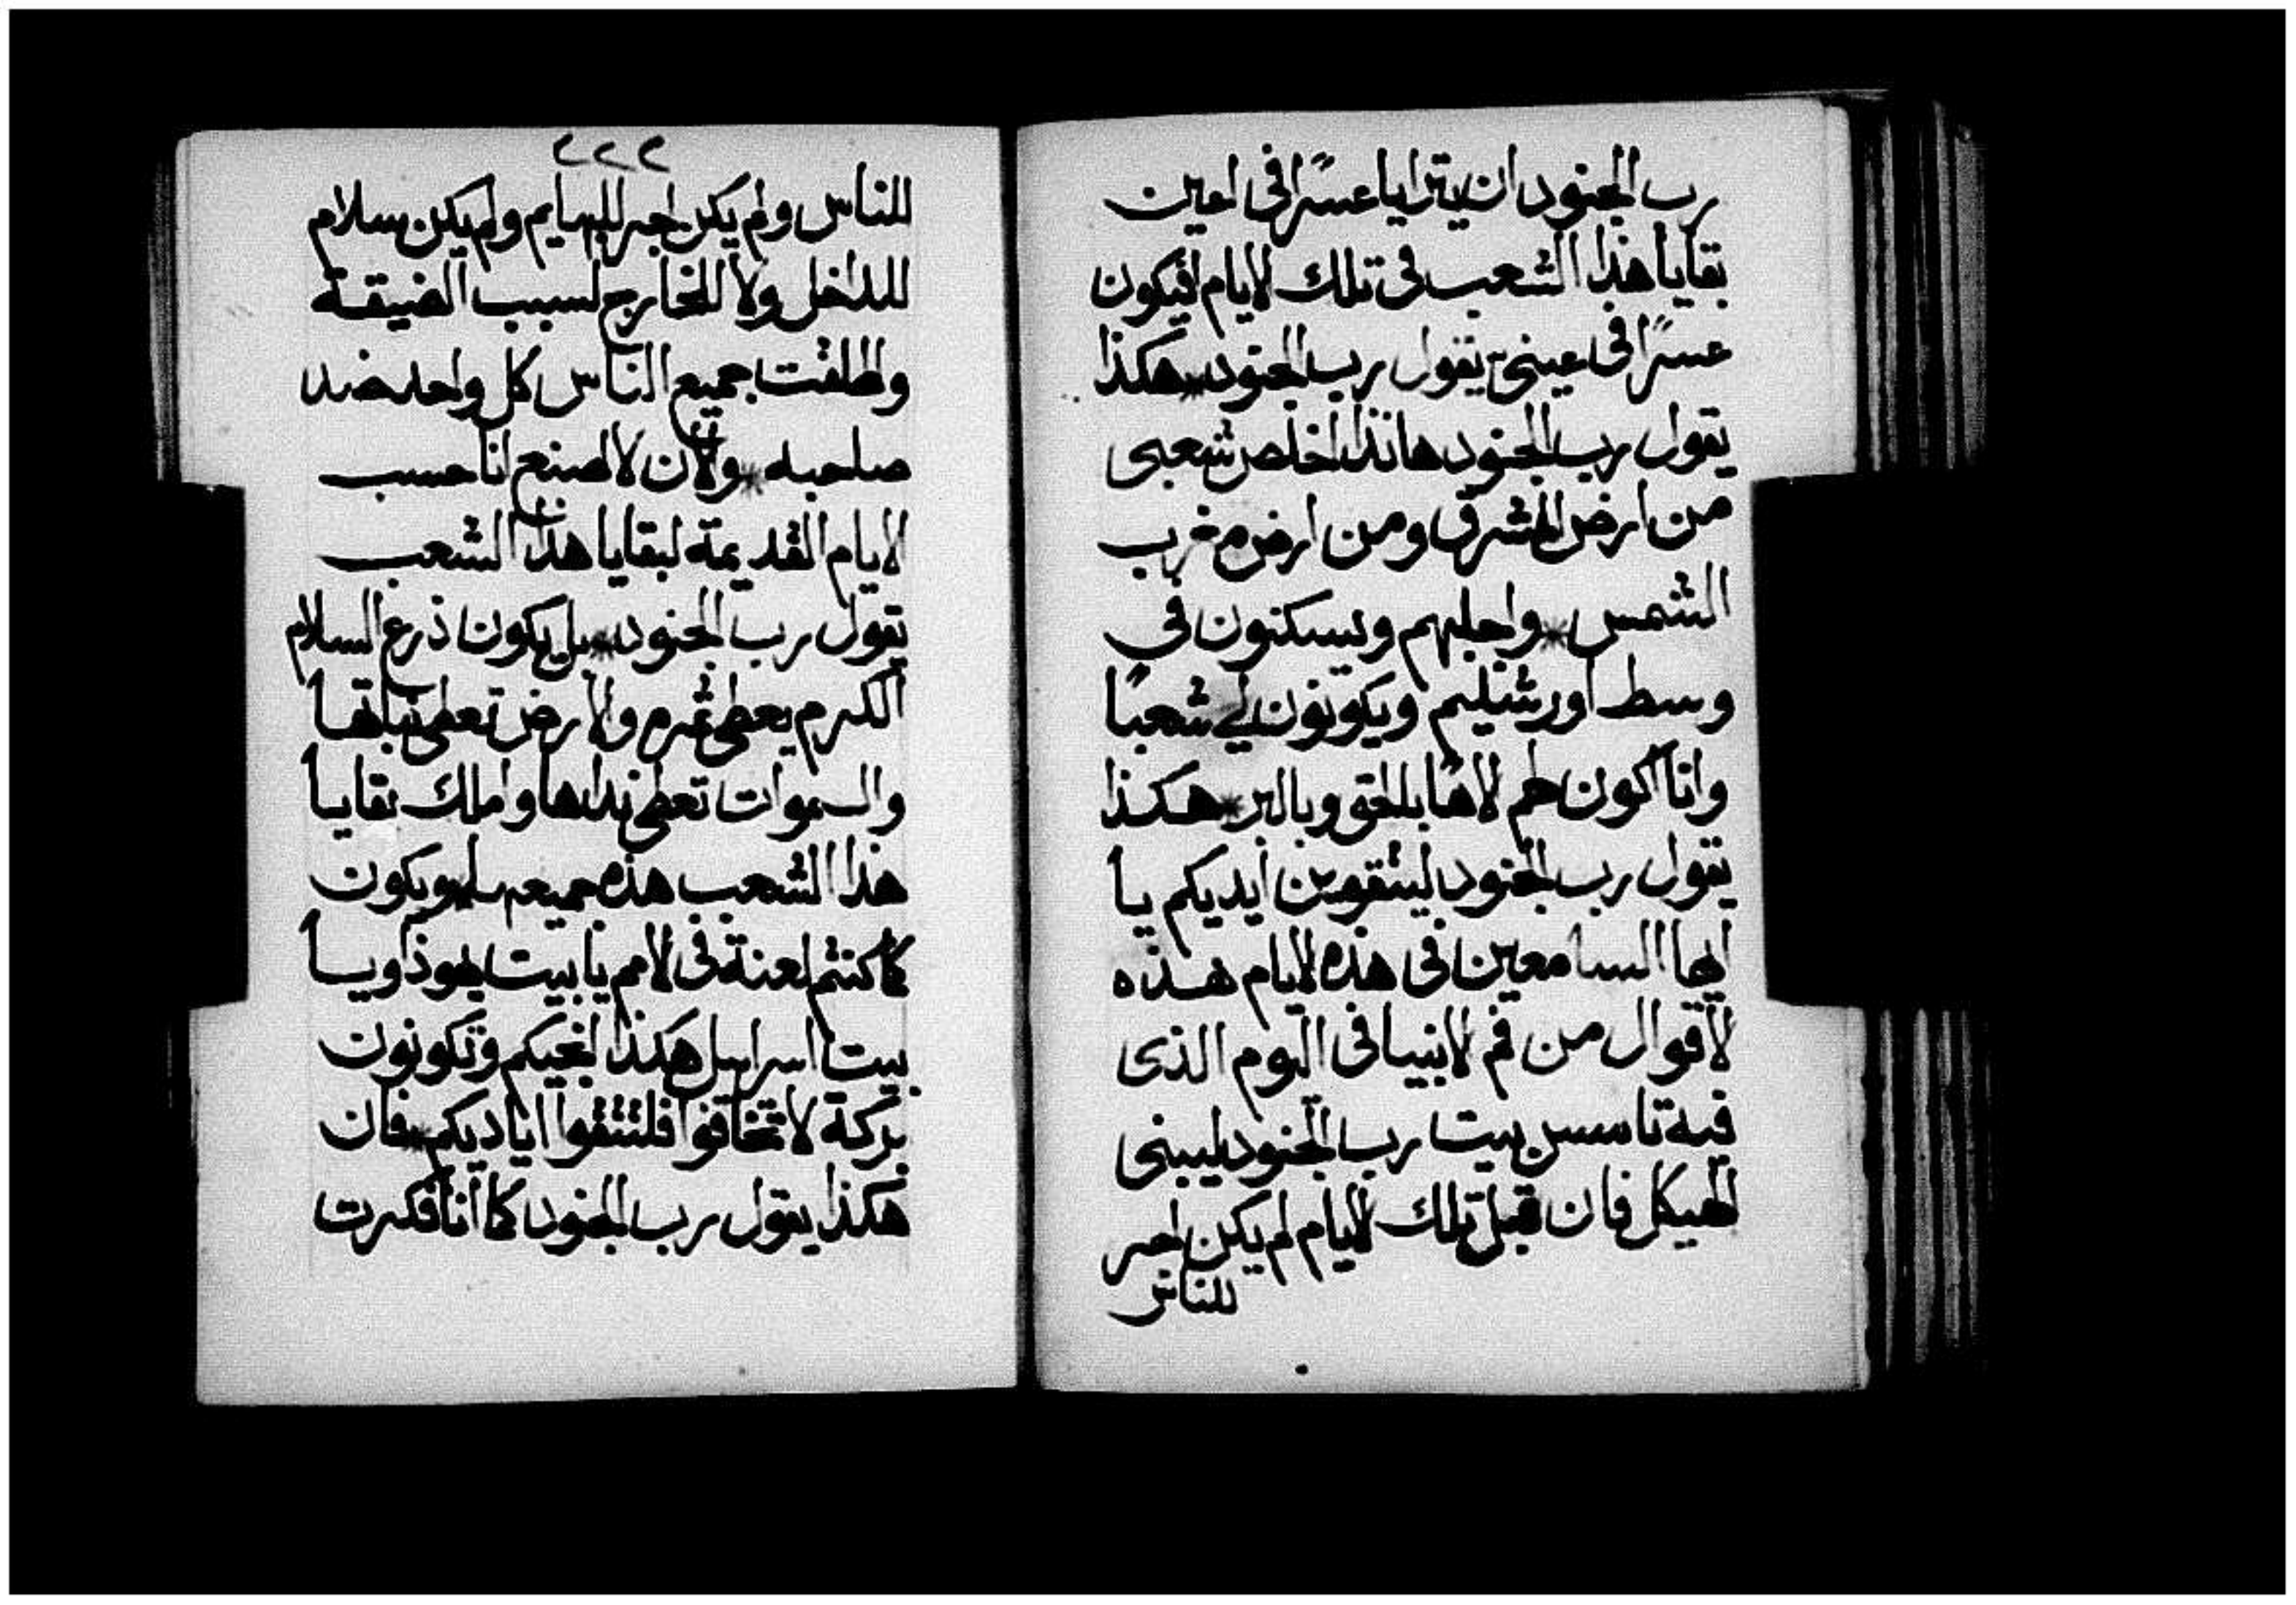 رب الجنود ان يترايا عسرًا في اعين
بقايا هذا الشعب في تلك الايام افيكون
عسرًا في عيني يقول رب الجنود * هكذا
يقول رب الجنود هانذا اخلص شعبي
من ارض المشرق ومن ارض مغرب
الشمس * واجلبهم ويسكنون في
وسط اورشليم ويكونون لي شعبًا
وانا اكون لهم الاهًا بالحق وبالبر * هكذا
يقول رب الجنود ليتقوين ايديكم يا
ايها السامعين في هذه الايام هذه
الاقوال من فم الانبيا في اليوم الذي
فيه تاسس بيت رب الجنود ليبنى
الهيكل فان قبل تلك الايام لم يكن اجر
للناس
٢٢٢
للناس ولم يكن اجر للبهايم ولم يكن سلام
للداخل ولا للخارج لسبب الضيقة
واطلقت جميع الناس كل واحد ضد
صاحبه * والان لا اصنع انا حسب
الايام القديمة لبقايا هذا الشعب
يقول رب الجنود * بل يكون ذرع السلام
الكرم يعطي ثمره والارض تعطي نباتها
والسموات تعطي نداها واملك بقايا
هذا الشعب هذه جميعها * ويكون
كما كنتم لعنة في الامم يا بيت يهوذا ويا
بيت اسراييل هكذا انجيكم وتكونون
بركة لا تخافوا فلتتقوا اياديكم * فان
هكذا يقول رب الجنود كما انا فكرت